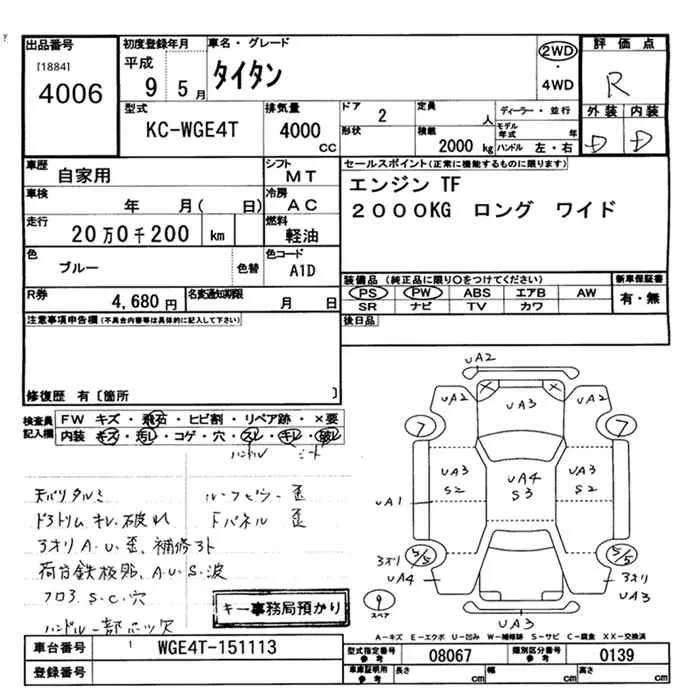 出品番号 初度登録年月 車名・グレード 評価点
[1884] 4006
平成 9 5月 タイタン 2WD ・ 4WD R
型式 排気量 ドア 定員 ディーラー・並行 外装 内装
KC-WGE4T 4000 CC 2 人 モデル年式 年 D D
形状 積載 2000 kg ハンドル 左・右
車歴 自家用 シフト MT セールスポイント(正常に機能するものに限ります)
車検 年 月( 日) 冷房 AC エンジン TF
走行 20万0千200 km 燃料 軽油 2000KG ロング ワイド
色 ブルー 色替 色コード A1D
装備品 (純正品に限り○をつけてください) 新車保証書
R券 4,680円 名変通知期限 月 日 PS PW ABS エアB AW 有・無
SR ナビ TV カワ
注意事項申告欄(不具合内容等は具体的に記入して下さい) 後日品
修復歴 有〔箇所 〕
検査員記入欄 FW キズ・飛石・ヒビ割・リペア跡・×要
内装 キズ・汚レ・コゲ・穴・スレ・キレ・破レ
ハンドル シート
天バリタルミ ルーフピラー歪
ドアトリムキレ、破れ Fパネル 歪
3オリ A・U・歪、補修アト
荷台鉄板貼、A・U・S・波
フロア S・C・穴
ハンドル一部欠
キー事務局預かり
UA2
UA2 UA3 UA2
7 7
UA3 S2 UA4 S3 UA3 S2
UA1
3オリ UA4 5/5 5/5 3オリ UA3
9 スペア
UA3
A-キズ E-エクボ U-凹み W-補修跡 S-サビ C-腐食 XX-交換済
車台番号 WGE4T-151113 型式指定番号 参考 08067 類別区分番号 参考 0139
登録番号 車庫証明用 参考 長さ cm 幅 cm 高さ cm